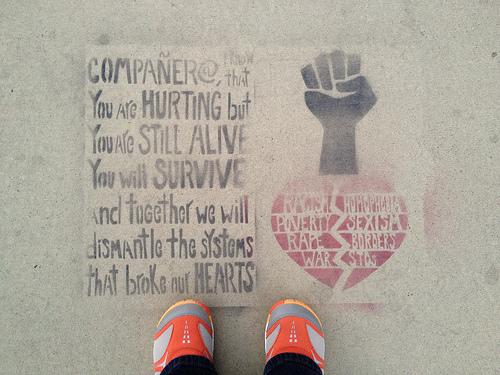 COMPAÑER@, I KNOW that
You Are HURTING but
You are STILL ALIVE
You will SURVIVE
and together we will
dismantle the systems
that broke our HEARTS
RACISM HOMOPHOBIA
POVERTY SEXISM
RAPE BORDERS
WAR STDs